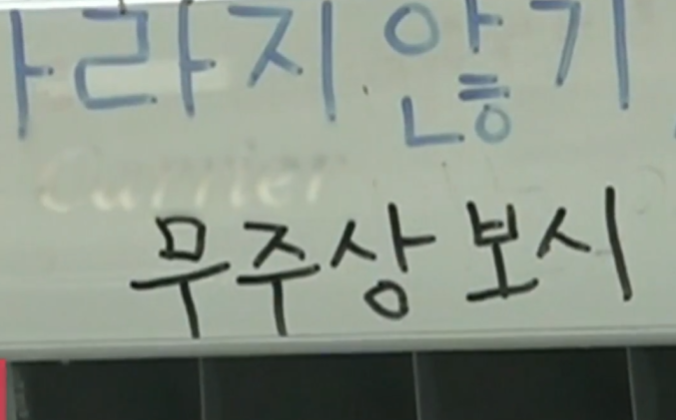 라지 않기
Carrier
무주상 보시